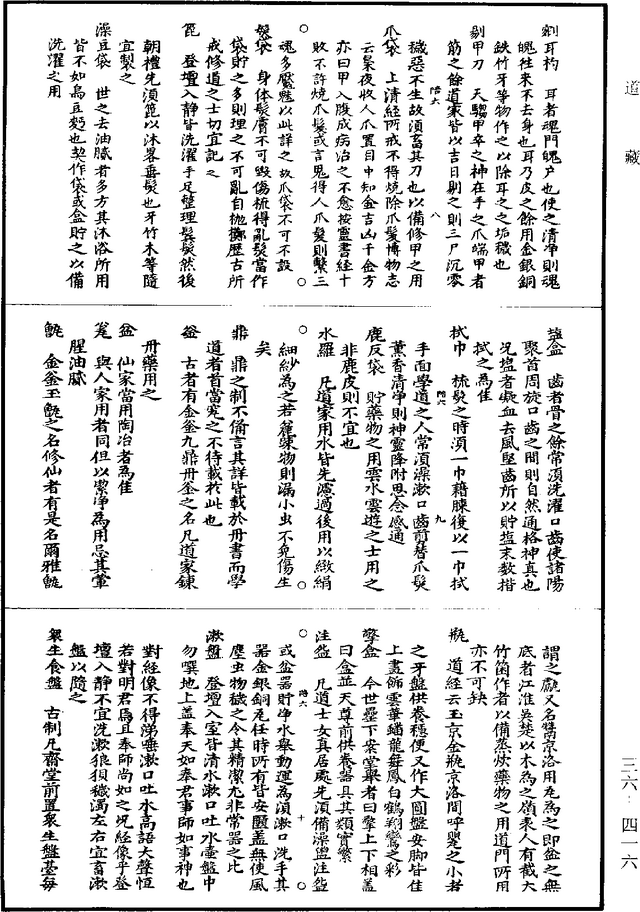 道藏
剜耳杓　耳者魂門魄户也使之清淨則魂
魄往來不去身也耳乃皮之餘用金銀銅
鉄竹牙等物作之以除耳之之垢穢也
剔甲刀　天騶甲卒之神在手之爪端甲者
筋之餘道家皆以吉日剔之則三尸沉零
階六　八
穢惡不生故須畜其刀也以備修甲之用
爪袋　上清經所戒不得燒除爪髮博物志
云梟夜收人爪置目中知金吉凶千金方
亦曰甲入腹成病治之不愈按靈書經十
敗不許燒爪髮或言鬼得人爪髮則繫三
魂多魘魅以此詳之故爪袋不可不設
髮袋　身体髮膚不可毀傷梳得亂髮當作
袋貯之多則理之不可亂自抛擲歷古所
戒修道之士切宜記之
箆　登壇入靜皆洗濯手足整理鬂髮然後
朝禮先須箆以沐畧垂髮也牙竹木等隨
宜製之
澡豆袋　世之去油膩者多方其沐浴所用
皆不如烏豆麪也契作袋或盒貯之以備
洗濯之用
塩盒　齒者骨之餘常須洗濯口齒使諸陽
聚首周旋口齒之間則自然通格神真也
况塩者凝血去風堅齒所以貯塩末数揩
拭之為佳
拭巾　梳髮之時須一巾藉膝後以一巾拭
階六　九
手面學道之人常須澡漱口齒前替爪髮
薰香清淨則神靈降附思念感通
鹿皮袋　貯藥物之用雲水雲遊之士用之
非鹿皮則不宜也
水羅　凡道家用水皆先濾過後用以緻絹
細紗為之若麓疎物則漏小虫不免傷生
矣
鼎　鼎之制不備言其詳皆載於丹書而學
道者首當究之不待載於此也
釜　古者有金釜九鼎丹釜之名凡道家鍊
丹藥用之
盆　仙家當用陶冶者為佳
笼　與人家用者同但以潔淨為用忌其葷
腥油膩
甑　金釜玉甑之名修仙者有是名爾雅甑
謂之鬵又名䰝京洛用瓦為之即盆之無
底者江淮吳楚以木為之嶺表人有截大
竹箇作者以備蒸炊藥物之用道門所用
亦不可缺
瓶　道經云玉京金瓶京洛間呼甖之小者
之牙盤供養穩便又作大圓盤安脚皆佳
上畫飾雲華蟠龍舞鳳白鶴翔鸞之彩
擎盒　今世疊下朵堂擧者曰擎上下相盖
曰盒並天尊前供養器具其類實繁
注盌　凡道士女真居處先須備澡盥注盌
階六　十
或盆器貯净水舉動運為須漱口洗手其
器金銀銅瓦任時所有皆安頤盖無使風
塵虫物穢之令其精潔尤非常器之比
漱盤　登壇入室皆清水漱口吐水壷盤中
勿噀地上盖奉天如奉君事師如事神也
對經像不得涕唾漱口吐水高語大聲恒
若對明君焉且奉師尚如之况經像乎登
壇入靜不宜洗漱狼狽穢濁左右宜畜漱
盤以隨之
衆生食盤　古制凡齋堂前置衆生盤臺每
三六—四一六